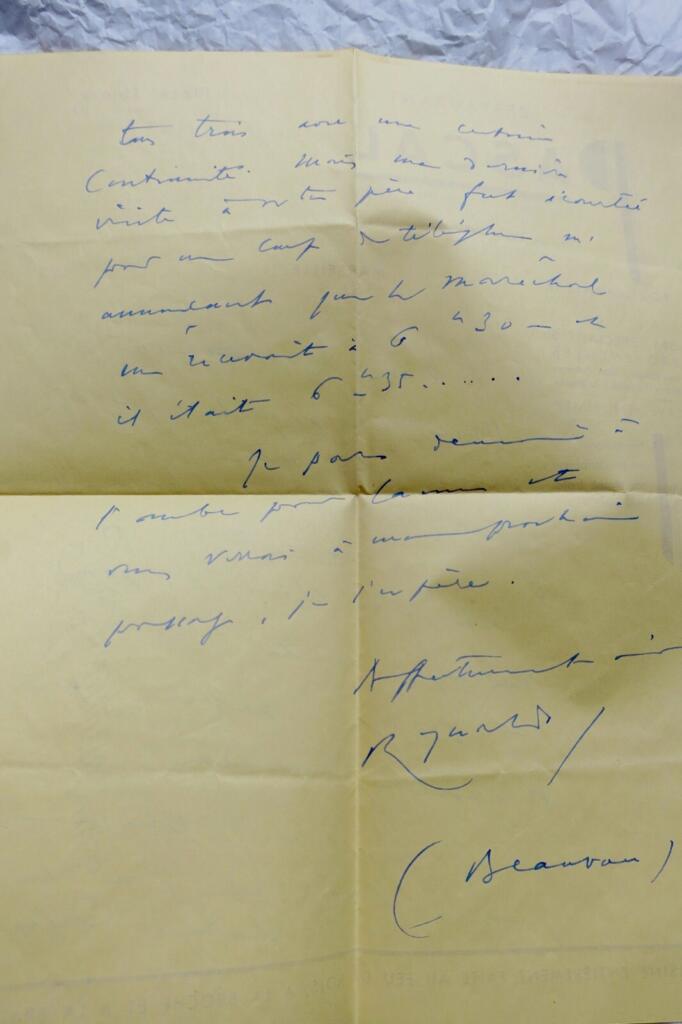 tous trois avec une certaine
Continuité. Mais ma dernière
visite à votre père fut écourtée
par un coup de téléphone m'
annonçant que le Maréchal
me recevait à 6 h 30 — et
il était 6 h 35......
Je pars demain à
l'aube pour Cannes et
vous verrai à mon prochain
passage, je l'espère.
Affectueusement
Reynaldo
(Beauvau)